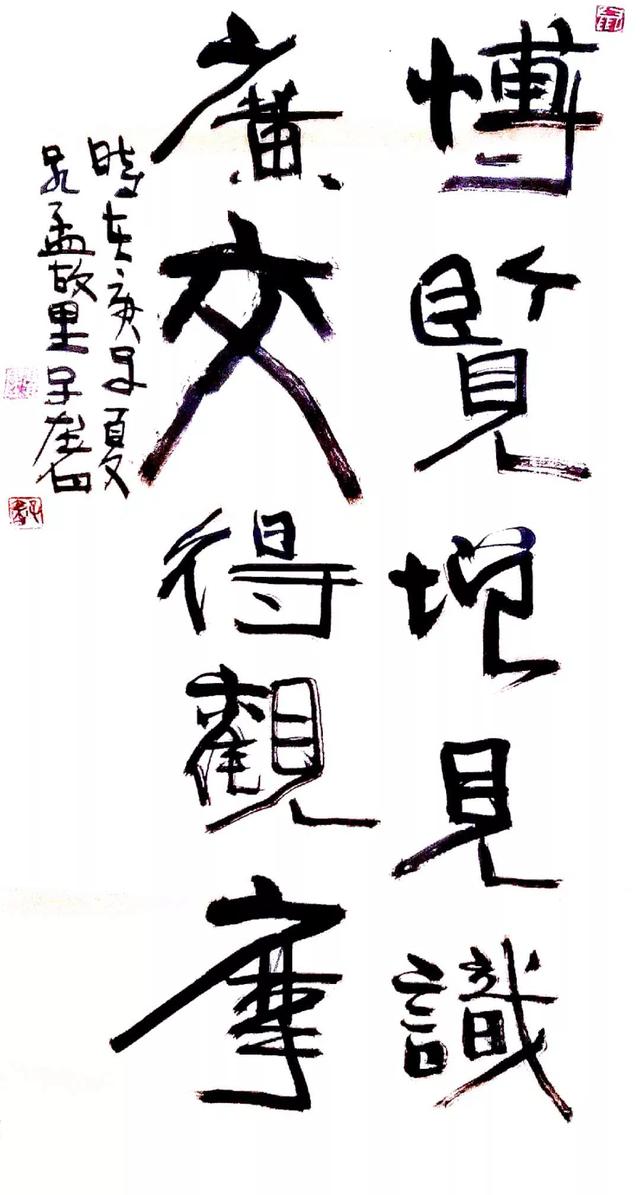 博覽增見識
廣交得觀摩
時在庚子夏
孔孟故里